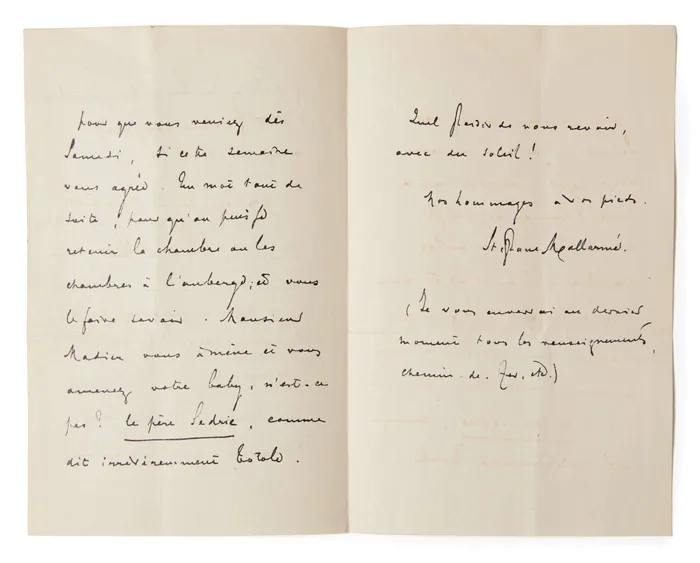 pour que vous veniez dès
Samedi, si cette semaine
vous agrée. Un mot tout de
suite, pour qu'on puisse
retenir la chambre ou les
chambres à l'auberge, et vous
le faire savoir. Monsieur
Madier vous amène et vous
amenez votre baby, n'est-ce
pas? le père Sédric, comme
dit irrévéremment
Quel plaisir de nous revoir,
avec du soleil!
Nos hommages à vos pieds.
Stéphane Mallarmé.
(Je vous enverrai au dernier
moment tous les renseignements,
chemin de fer, etc.)